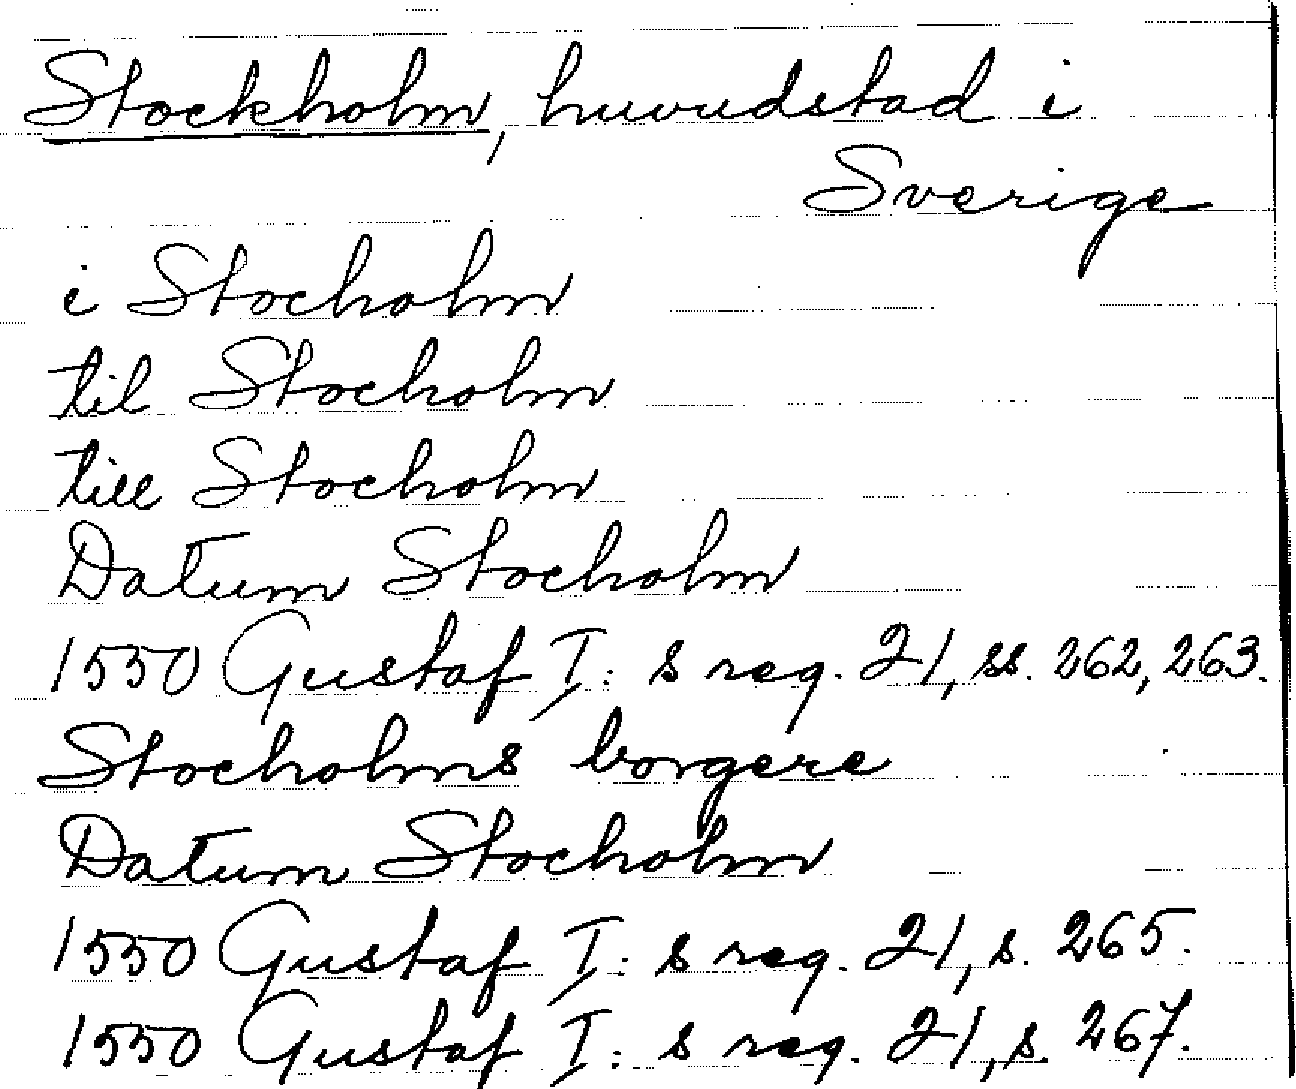 Stockholm, huvudstad i
Sverige
i Stocholm
til Stocholm
till Stocholm
Datum Stocholm
1550 Gustaf I: s reg. 21, ss. 262, 263.
Stocholms borgere
Datum Stocholm
1550 Gustaf I: s reg. 21, s. 265.
1550 Gustaf I: s reg. 21, s. 267.